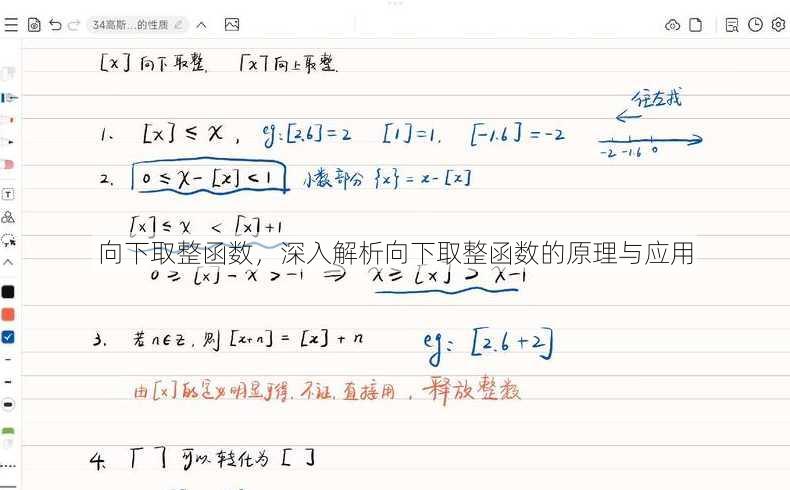 34高斯...的性质
[x]向下取整, ⌈x⌉向上取整.
往左找
1. [x] ≤ x, eg:[2.6]=2 [1]=1. [-1.6]=-2
-2 -1.6 0
2. 0 ≤ x-[x]<1 小数部分{x}=x-[x]
[x] ≤ x < [x]+1
向下取整函数，深入解析向下取整函数的原理与应用
0 ≥ [x]-x >-1 ⇒ x ≥ [x] > x-1
3. 若n∈Z,则[x+n]=[x]+n eg: [2.6+2]
由[x]的定义明显可得,不证,直接用,释放整数
4. ⌈ ⌉可以转化为[ ]